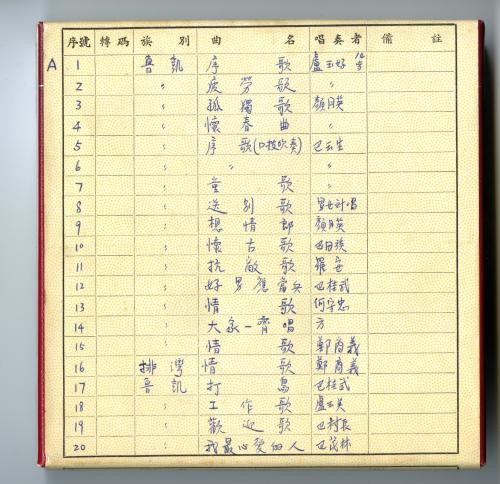 序號 轉碼 族別 曲名 唱奏者 備註
A 1 魯凱 序歌 盧玉好 等
2 〃 疲勞歌 〃
3 〃 孤獨歌 顏月英
4 〃 懷春曲 〃
5 〃 序歌(口技吹奏) 巴云生
6 〃 〃 〃
7 〃 童歌 〃
8 〃 送別歌 男女対唱
9 〃 想情郎 顏月英
10 〃 懷古歌
11 〃 抗敵歌
12 〃 好男應當兵 巴桂武
13 〃 情歌 何宗忠
14 〃 大家一齊唱 方
15 〃 情歌 鄭商義
16 排灣 情歌 鄭商義
17 魯凱 打鳥 巴桂武
18 〃 工作歌
19 〃 歡迎歌 巴村長
20 〃 我最心愛的人 巴茂林